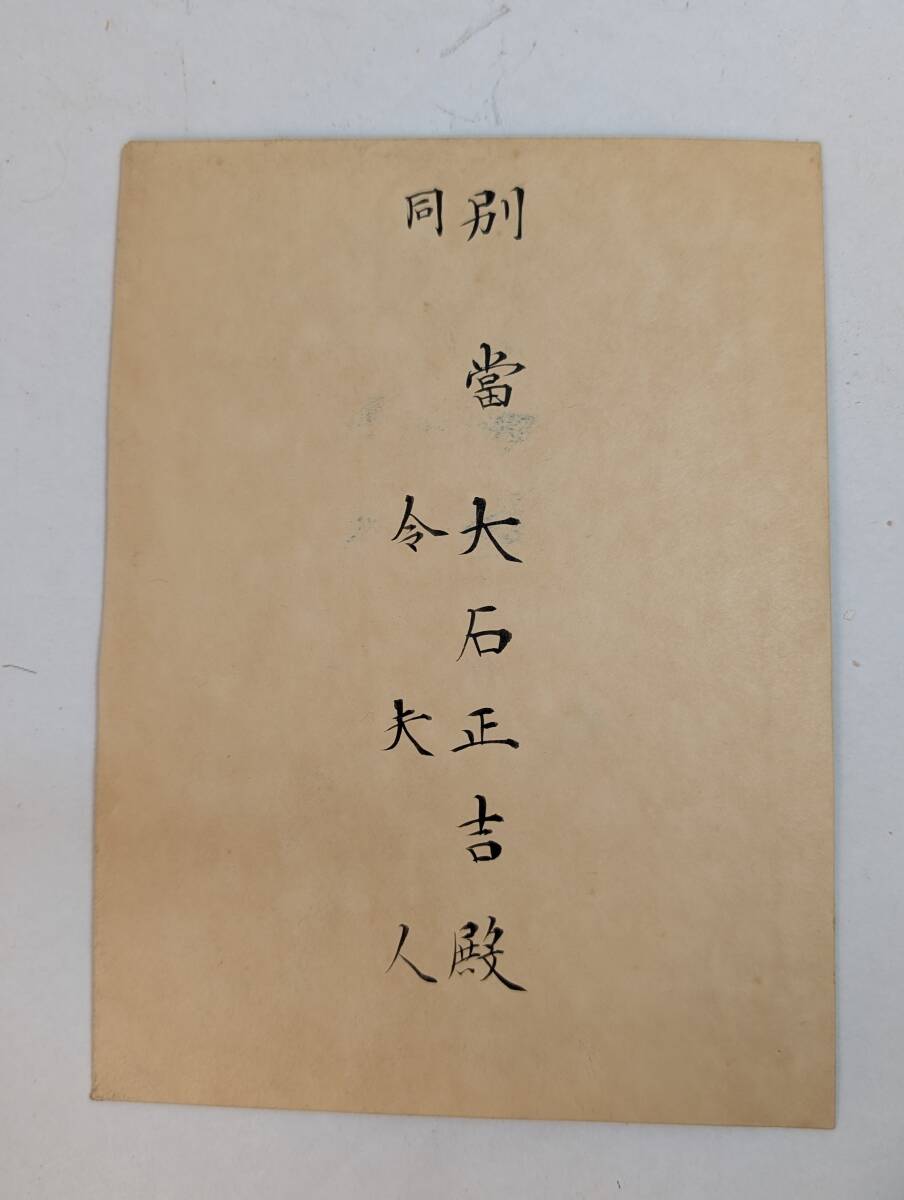 別當大石正吉殿
同令夫人